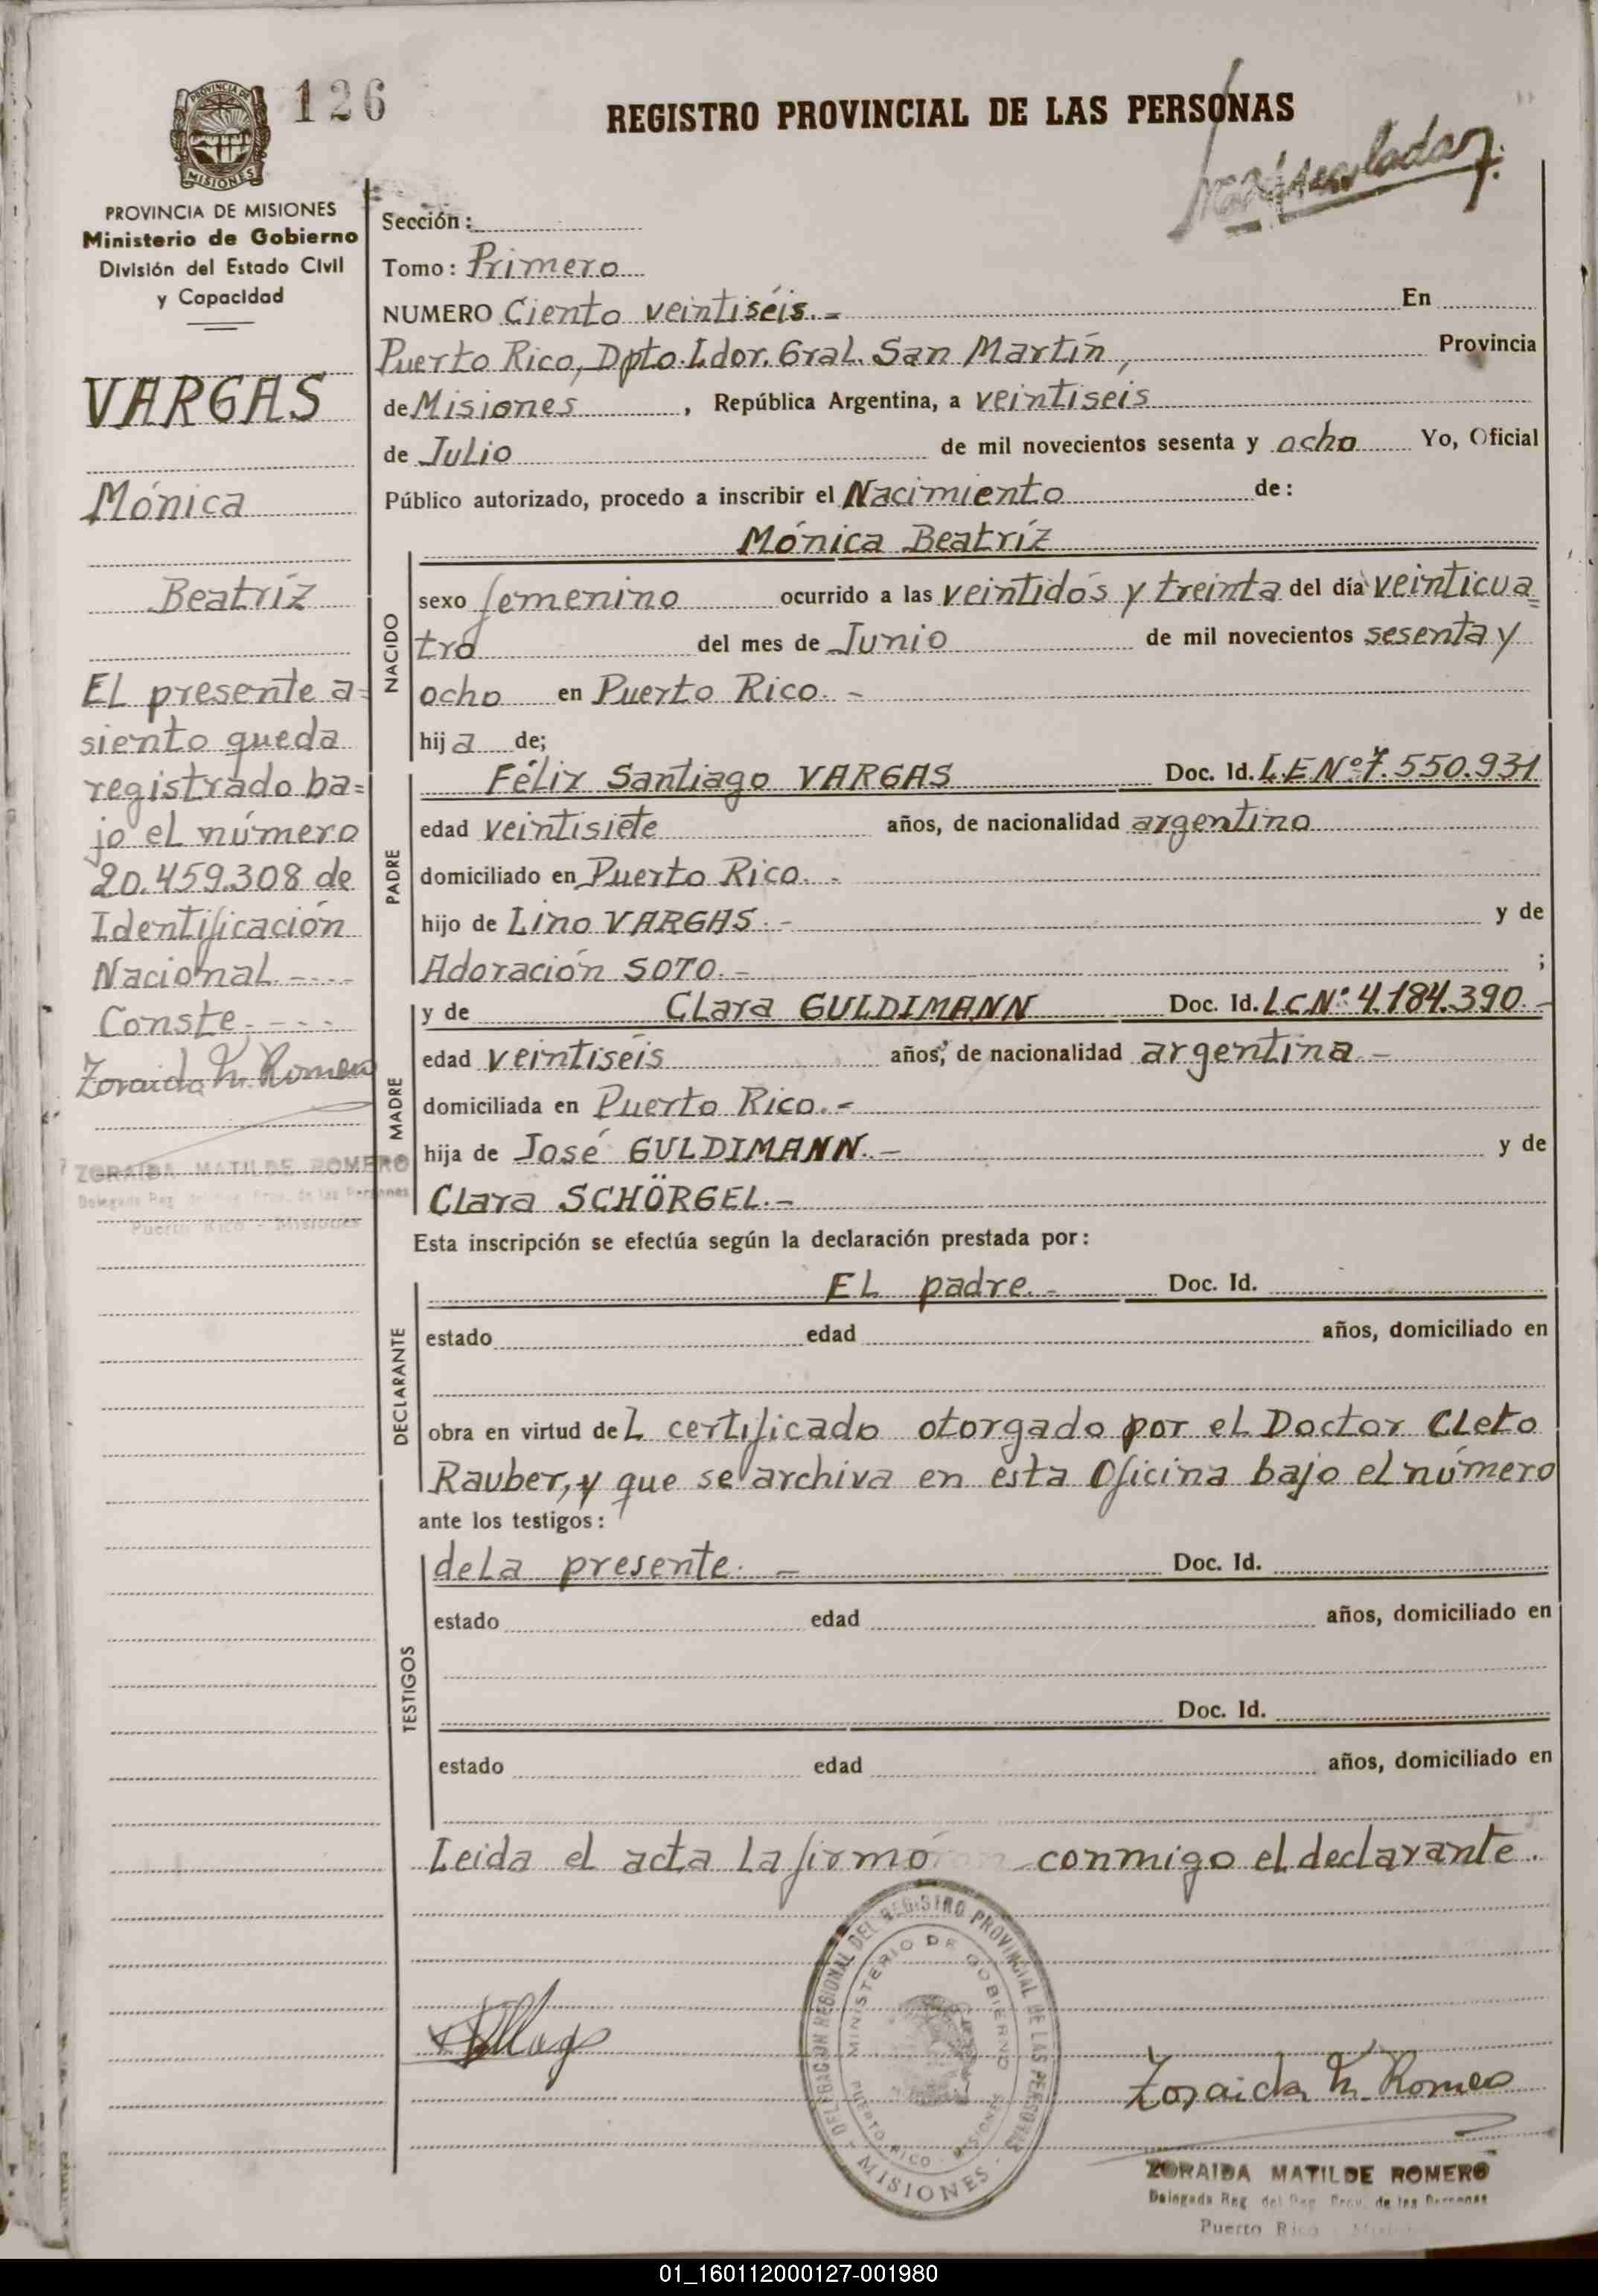 126
REGISTRO PROVINCIAL DE LAS PERSONAS
PROVINCIA DE
MISIONES
PROVINCIA DE MISIONES
Ministerio de Gobierno
División del Estado Civil
y Capacidad
VARGAS
Mónica
Beatríz
El presente a=
siento queda
registrado ba=
jo el número
20.459.308 de
Identificación
Nacional.----
Conste.---
Zoraida M. Romero
ZORAIDA MATILDE ROMERO
Delegada Reg. del Reg. Prov. de las Personas
Puerto Rico - Misiones
Sección:
Tomo: Primero
NUMERO Ciento veintiséis.- En
Puerto Rico, Dpto. Ldor. Gral. San Martín, Provincia
de Misiones, República Argentina, a veintiseis
de Julio de mil novecientos sesenta y ocho Yo, Oficial
Público autorizado, procedo a inscribir el Nacimiento de:
Mónica Beatríz
NACIDO
sexo femenino ocurrido a las veintidós y treinta del día veinticua=
tro del mes de Junio de mil novecientos sesenta y
ocho en Puerto Rico.-
hija de;
PADRE
Félix Santiago VARGAS Doc. Id. L.E.Nº 7.550.931
edad veintisiete años, de nacionalidad argentino
domiciliado en Puerto Rico.-
hijo de Lino VARGAS.- y de
Adoración SOTO.- ;
MADRE
y de Clara GULDIMANN Doc. Id. L.C.Nº 4.184.390.-
edad veintiséis años, de nacionalidad argentina.-
domiciliada en Puerto Rico.-
hija de José GULDIMANN.- y de
Clara SCHÖRGEL.-
Esta inscripción se efectúa según la declaración prestada por:
DECLARANTE
El padre.- Doc. Id.
estado edad años, domiciliado en
obra en virtud del certificado otorgado por el Doctor Cleto
Rauber, y que se archiva en esta Oficina bajo el número
ante los testigos:
TESTIGOS
de la presente.- Doc. Id.
estado edad años, domiciliado en
Doc. Id.
estado edad años, domiciliado en
Leida el acta la firmó conmigo el declarante.
DELEGACION REGIONAL DEL REGISTRO PROVINCIAL DE LAS PERSONAS
MINISTERIO DE GOBIERNO
PUERTO RICO - MISIONES
- MISIONES -
Zoraida M. Romero
ZORAIDA MATILDE ROMERO
Delegada Reg. del Reg. Prov. de las Personas
Puerto Rico
01_160112000127-001980